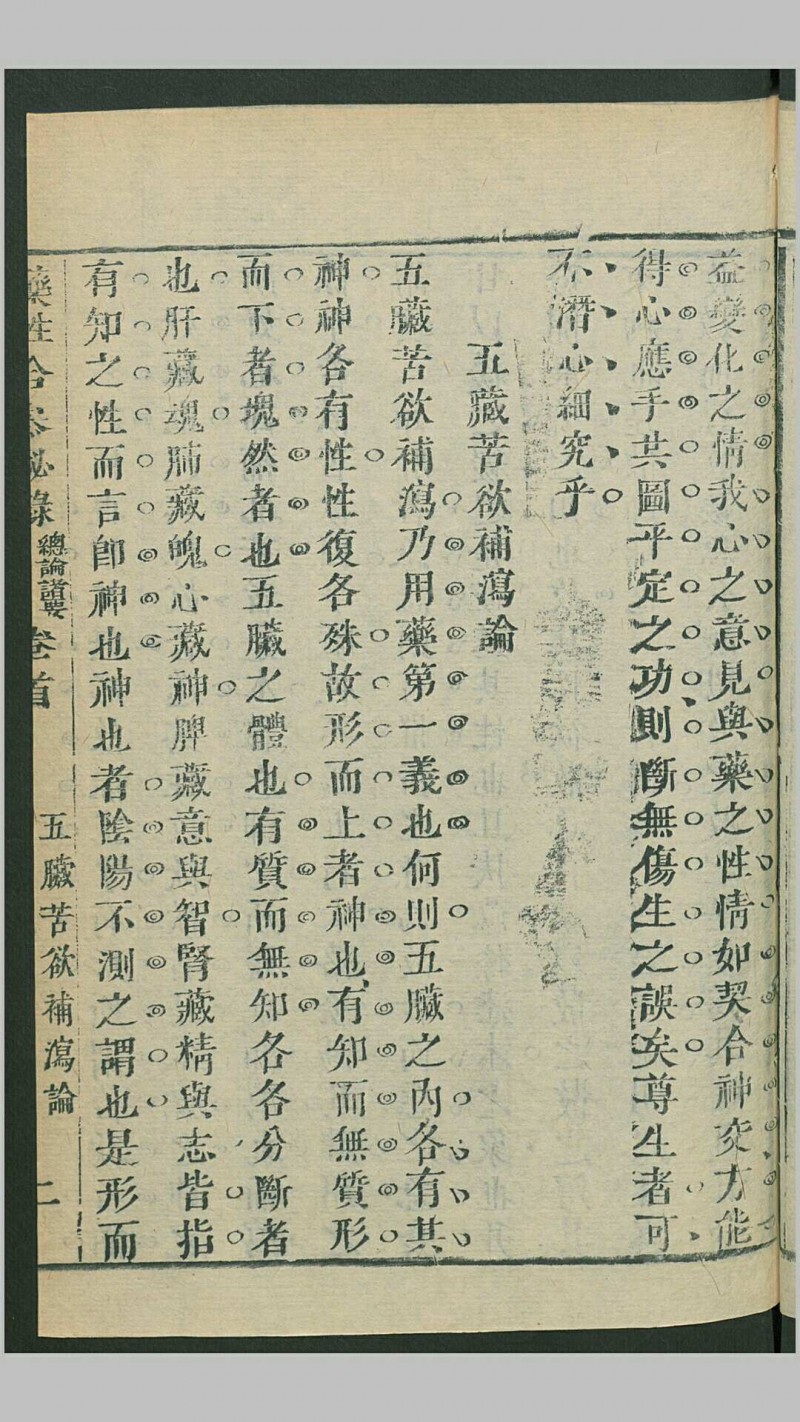 益變化之情我心之意見與藥之性情如契合神交方能
得心應手其圖平定之功則斷無傷生之誤矣尊生者可
不潛心細究乎
五臟苦欲補瀉論
五臟苦欲補瀉乃用藥第一義也何則五臟之內各有其
神神各有性性復各殊故形而上者神也有知而無質形
而下者塊然者也五臟之體也有質而無知各各分斷者
也肝藏魂肺藏魄心藏神脾藏意與智腎藏精與志皆指
有知之性而言卽神也神也者陰陽不測之謂也是形而
藥性合參秘錄 總論諸要 卷首 五臟苦欲補瀉論 二